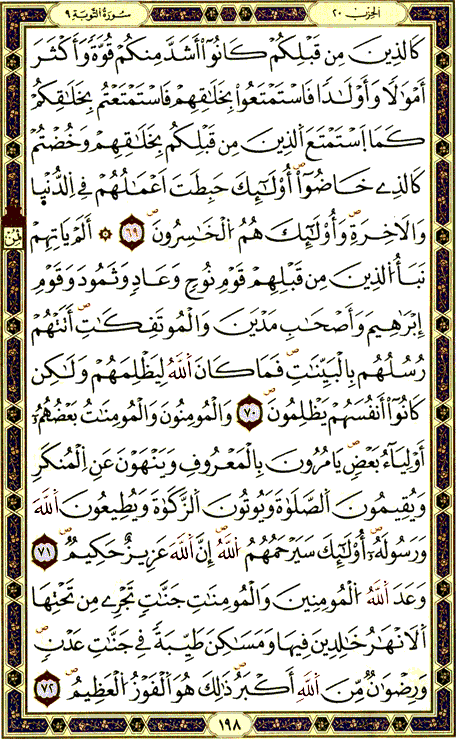 سُورَةُ التَّوْبَةِ ٩
الحِزْب ٢٠
كَالذِينَ مِن قَبْلِكُمْ كَانُوٓاْ أَشَدَّ مِنكُمْ قُوَّةً وَأَكْثَرَ
أَمْوَٰلًا وَأَوْلَٰدًا فَاسْتَمْتَعُواْ بِخَلَٰقِهِمْ فَاسْتَمْتَعْتُم بِخَلَٰقِكُمْ
كَمَا اَسْتَمْتَعَ الذِينَ مِن قَبْلِكُم بِخَلَٰقِهِمْ وَخُضْتُمْ
كَالذِے خَاضُوٓاْ أُوْلَٰٓئِكَ حَبِطَتَ اَعْمَٰلُهُمْ فِے اِلدُّنْيٜا
وَالَاخِرَةِ وَأُوْلَٰٓئِكَ هُمُ اُلْخَٰسِرُونَ ٦٩ ۞ أَلَمْ يَاتِهِمْ
ثمن
نَبَأُ اُلذِينَ مِن قَبْلِهِمْ قَوْمِ نُوحٍ وَعَادٍ وَثَمُودَ وَقَوْمِ
إِبْرَٰهِيمَ وَأَصْحَٰبِ مَدْيَنَ وَالْمُوتَفِكَٰتِ أَتَتْهُمْ
رُسُلُهُم بِالْبَيِّنَٰتِ فَمَا كَانَ اَللَّهُ لِيَظْلِمَهُمْ وَلَٰكِن
كَانُوٓاْ أَنفُسَهُمْ يَظْلِمُونَ ٧٠ وَالْمُومِنُونَ وَالْمُومِنَٰتُ بَعْضُهُمُۥٓ
أَوْلِيَآءُ بَعْضٍ يَامُرُونَ بِالْمَعْرُوفِ وَيَنْهَوْنَ عَنِ الْمُنكَرِ
وَيُقِيمُونَ اَلصَّلَوٰةَ وَيُوتُونَ اَلزَّكَوٰةَ وَيُطِيعُونَ اَللَّهَ
وَرَسُولَهُۥٓ أُوْلَٰٓئِكَ سَيَرْحَمُهُمُ اُللَّهُ إِنَّ اَللَّهَ عَزِيزٌ حَكِيمٌ ٧١
وَعَدَ اَللَّهُ اُلْمُومِنِينَ وَالْمُومِنَٰتِ جَنَّٰتٍ تَجْرِے مِن تَحْتِهَا
اَلَانْهَٰرُ خَٰلِدِينَ فِيهَا وَمَسَٰكِنَ طَيِّبَةً فِے جَنَّٰتِ عَدْنٍ
وَرِضْوَٰنٌ مِّنَ اَللَّهِ أَكْبَرُ ذَٰلِكَ هُوَ اَلْفَوْزُ اُلْعَظِيمُ ٧٢
١٩٨